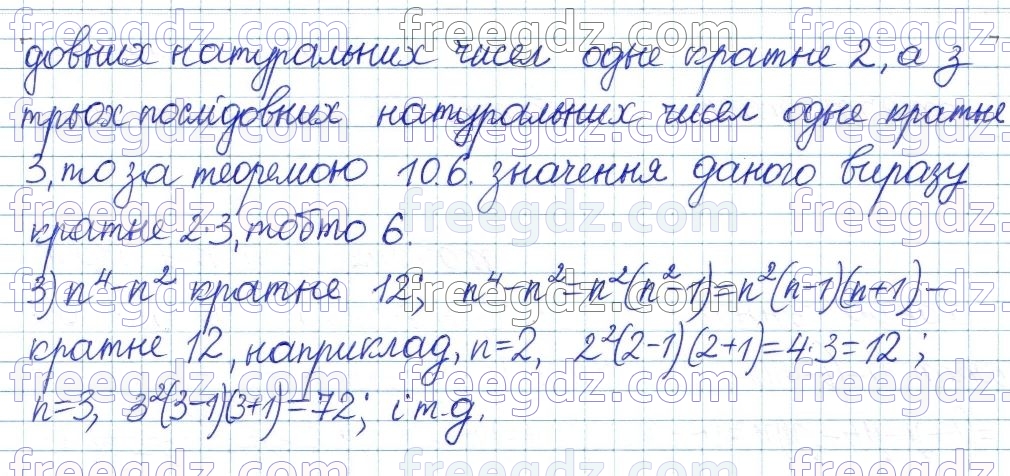 довних натуральних чисел одне кратне 2, а з
трьох послідовних натуральних чисел одне кратне
3, то за теоремою 10.6. значення даного виразу
кратне 2·3, тобто 6.
3) n⁴-n² кратне 12; n⁴-n²=n²(n²-1)=n²(n-1)(n+1) –
кратне 12, наприклад, n=2, 2²(2-1)(2+1)=4·3=12;
n=3, 3²(3-1)(3+1)=72; і т.д.
freegdz.com